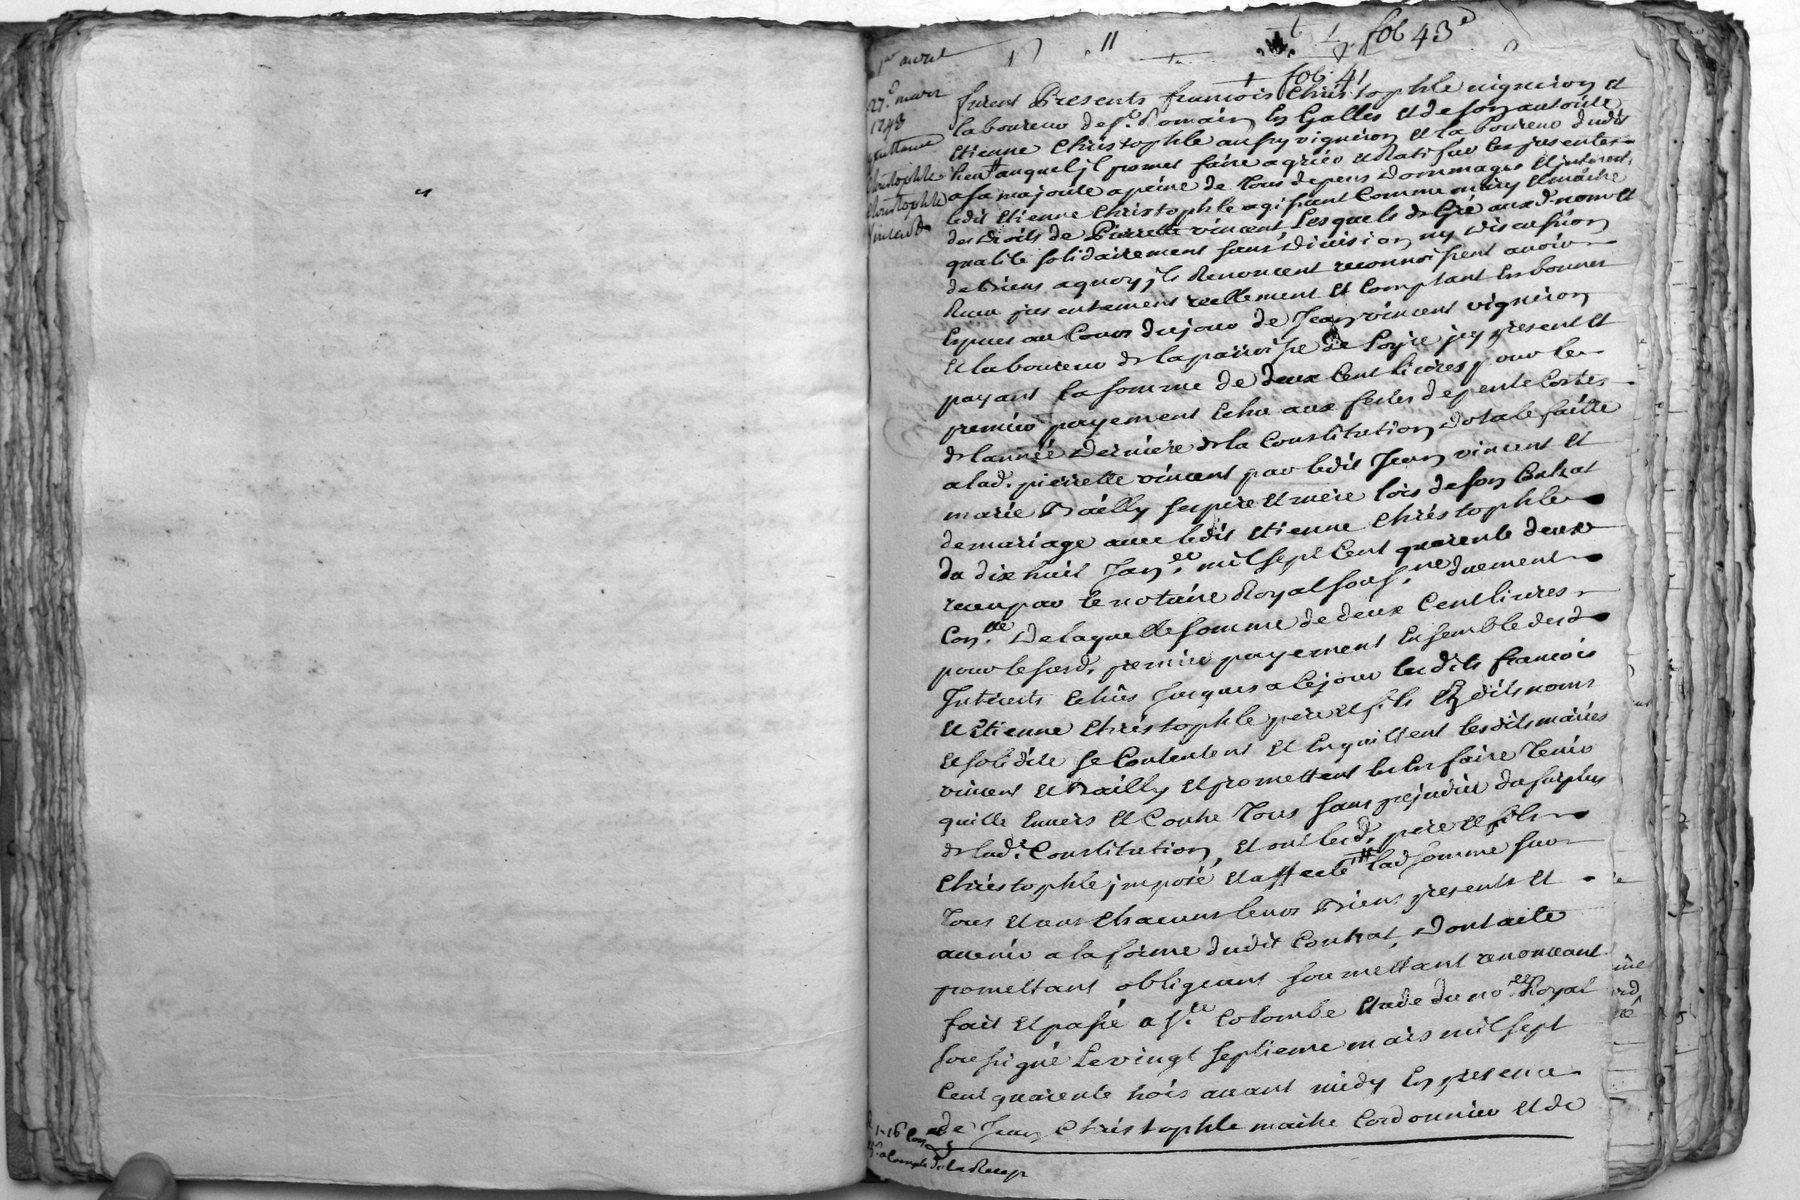 fol 43
fol 41
1er avril
27e mars
1743
quittance
Christophle
Christophle
Vincent
furent Presents francois Christophle vigneron et
laboureur de St. Romain En Galles et de son autorite
Etienne Christophle aussy vigneron et laboureur dudit
lieu # auquel jl promet faire agréer et Ratifier les presentes
a sa majorité a peine de tous depens dommages et interests,
ledit Etienne Christophle agissant Comme mary et maitre
des droits de Pierrette vincent, Lesquels de Gré auxd. noms et
qualité solidairement sans division ny discussion
de biens a quoy jls Renoncent reconnoissent avoir
Receu presentement reellement et Comptant En bonnes
Especes au Cours du jour de Jean vincent vigneron
et laboureur de la paroisse de Loyre jcy present et
payant la somme de deux Cent livres pour le
premier payement Echu aux festes de pentecostes
de lannée derniere de la Constitution dotale faitte
a lad. pierrette vincent par ledit Jean vincent et
marie Bailly ses pere et mere lors de son Contrat
de mariage avec ledit Etienne Christophle
du dix huit Janer. mil sept Cent quarente deux
receu par le notaire Royal sousne. duement
Conlle. De laquelle somme de deux Cent livres
pour le susd. premier payement Ensemble desd.
Interests Echûs jusques a Ce jour lesdits francois
et Etienne Christophle pere et fils Esdits noms
et solidité se Contentent et En quittent lesdits mariés
vincent et Bailly et promettent les En faire tenir
quitte Envers et Contre tous sans prejudice du surplus
de lad. Constitution, et ont lesd. pere et fils
Christophle jmposé et affecté # lad somme sur
tous et uns chacuns leurs Biens presents et
avenir a la forme dudit Contrat, Dont acte
promettant obligeant soumettant renonceant
fait et passé a Ste. Colombe Etude du nore Royal
soussigné Le vingt septieme mars mil sept
Cent quarente trois avant midy En presence
de Jean Christophle maitre Cordonnier et de